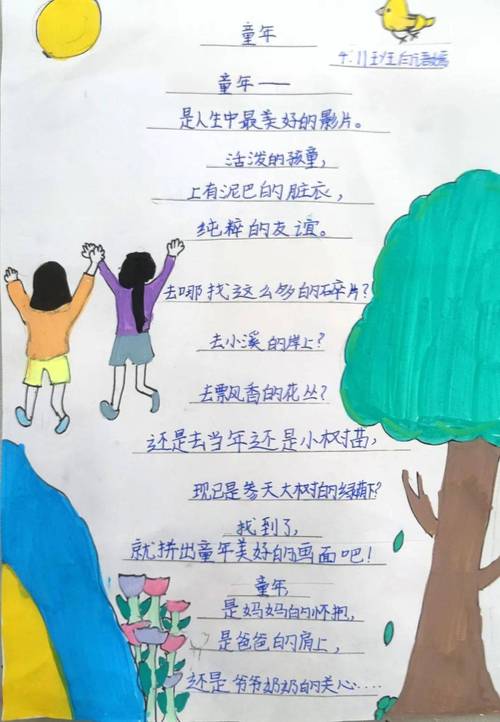 童年
4.11班
童年——
是人生中最美好的影片。
活泼的孩童，
上有泥巴的脏衣，
纯粹的友谊。
去哪找这么多的碎片？
去小溪的岸上？
去飘香的花丛？
还是去当年还是小树苗，
现已是参天大树的绿荫下？
找到了，
就拼出童年美好的画面吧！
童年，
是妈妈的怀抱，
是爸爸的肩上，
还是爷爷奶奶的关心……